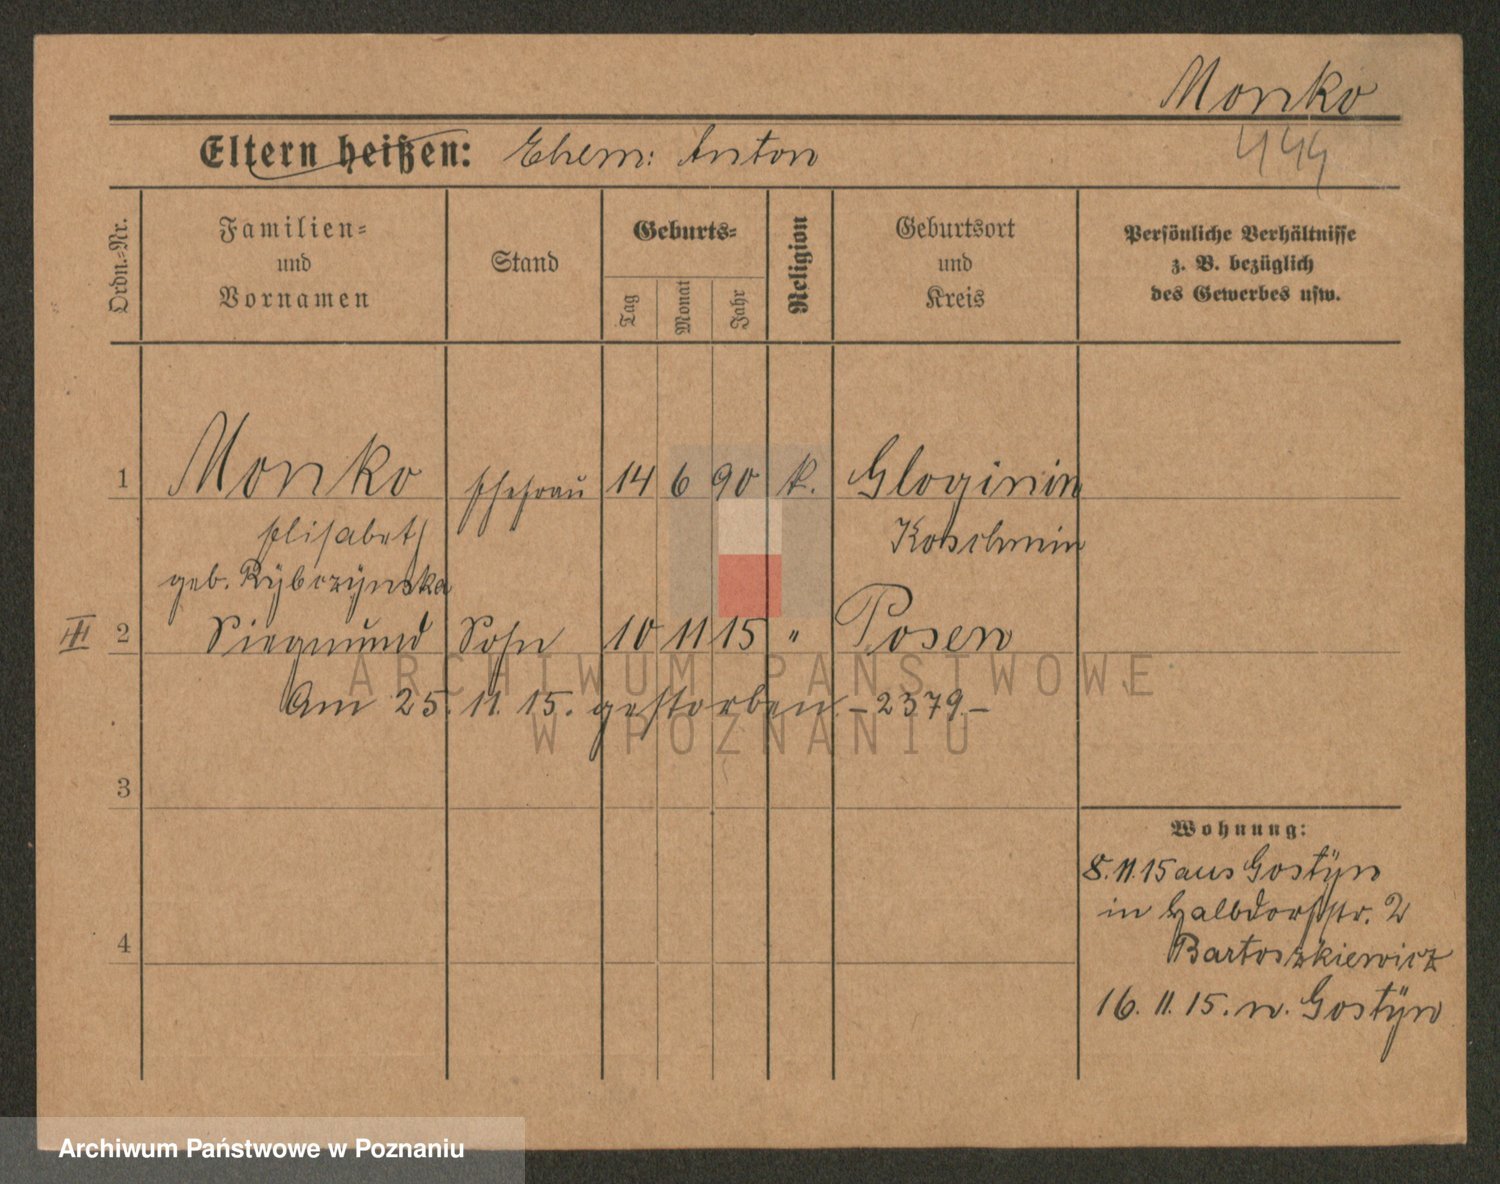 Monko
444
Eltern heißen: Ehem: Anton
Ordn.=Nr.
Familien=
und
Vornamen
Stand
Geburts=
Tag
Monat
Jahr
Religion
Geburtsort
und
Kreis
Persönliche Verhältnisse
z. B. bezüglich
des Gewerbes usw.
1 Monko Ehefrau 14 6 90 k. Gloginin
Elisabet Koschmin
geb. Rybczynska
III 2 Siegmund Sohn 10 11 15 " Posen
Am 25. 11. 15. gestorben. - 2379. -
3
4
Wohnung:
8. 11. 15 aus Gostÿn
in Halbdorfstr. 2
Bartoszkiewicz
16. 11. 15. n. Gostÿn
ARCHIWUM PAŃSTWOWE
W POZNANIU
Archiwum Państwowe w Poznaniu